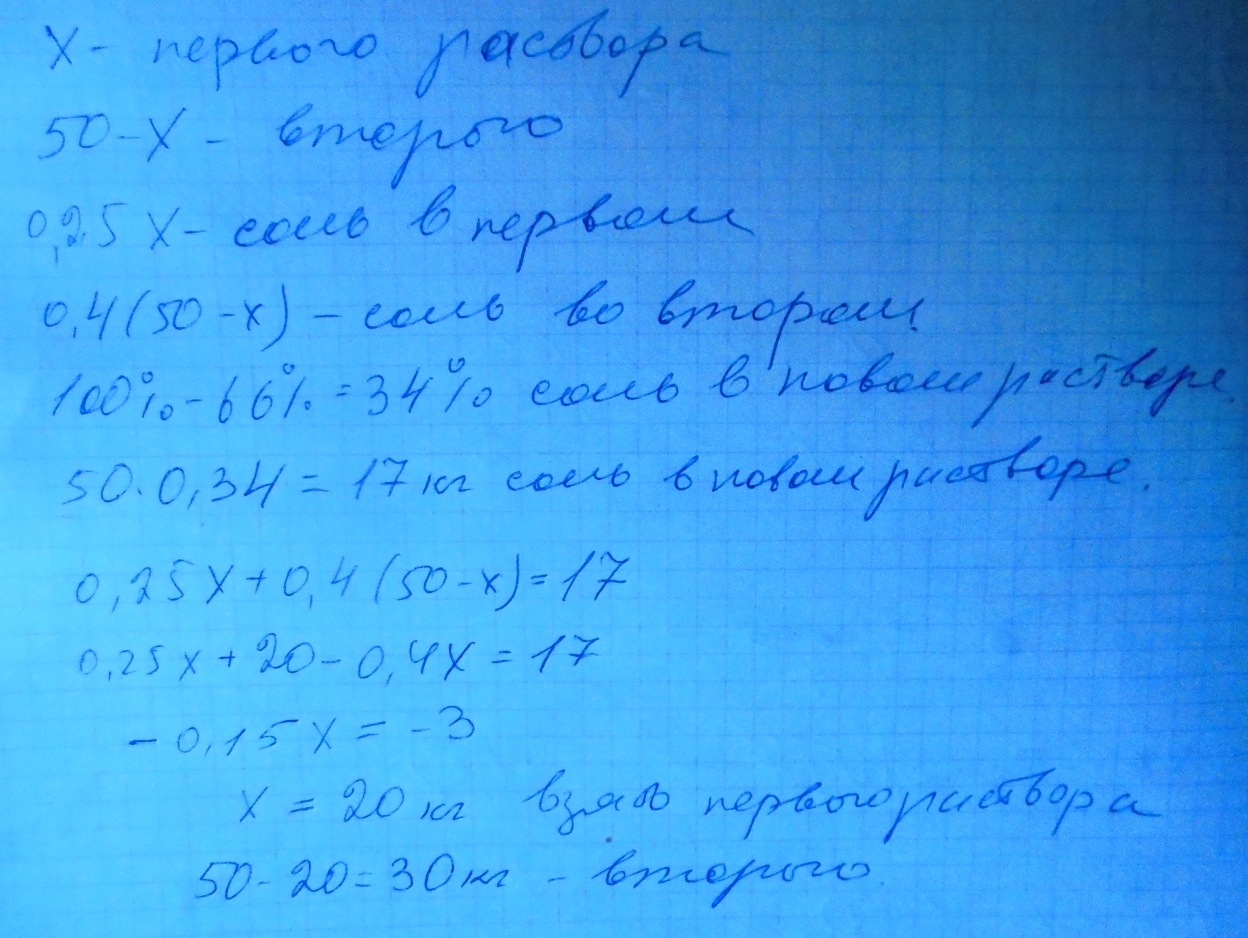 X - первого раствора
50-X - второго
0,25 X - соль в первом
0,4(50-x) - соль во втором
100% - 66% = 34% соль в новом растворе.
50·0,34 = 17 кг соль в новом растворе.
0,25X+0,4(50-x)=17
0,25x+20-0,4X=17
-0,15X=-3
X = 20 кг взять первого раствора
50-20=30кг - второго.